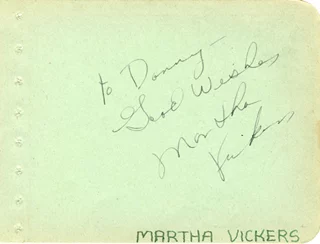 to Danny —
Good Wishes
Martha
Vickers
MARTHA VICKERS